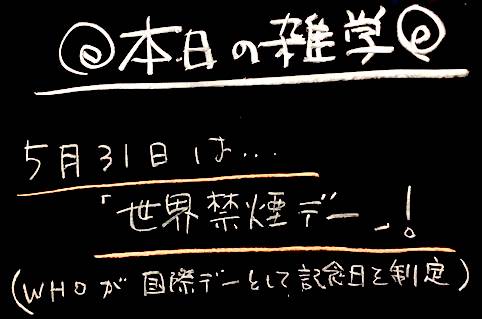 @本日の雑学@
5月31日は...
「世界禁煙デー」!
(WHOが国際デーとして記念日を制定)